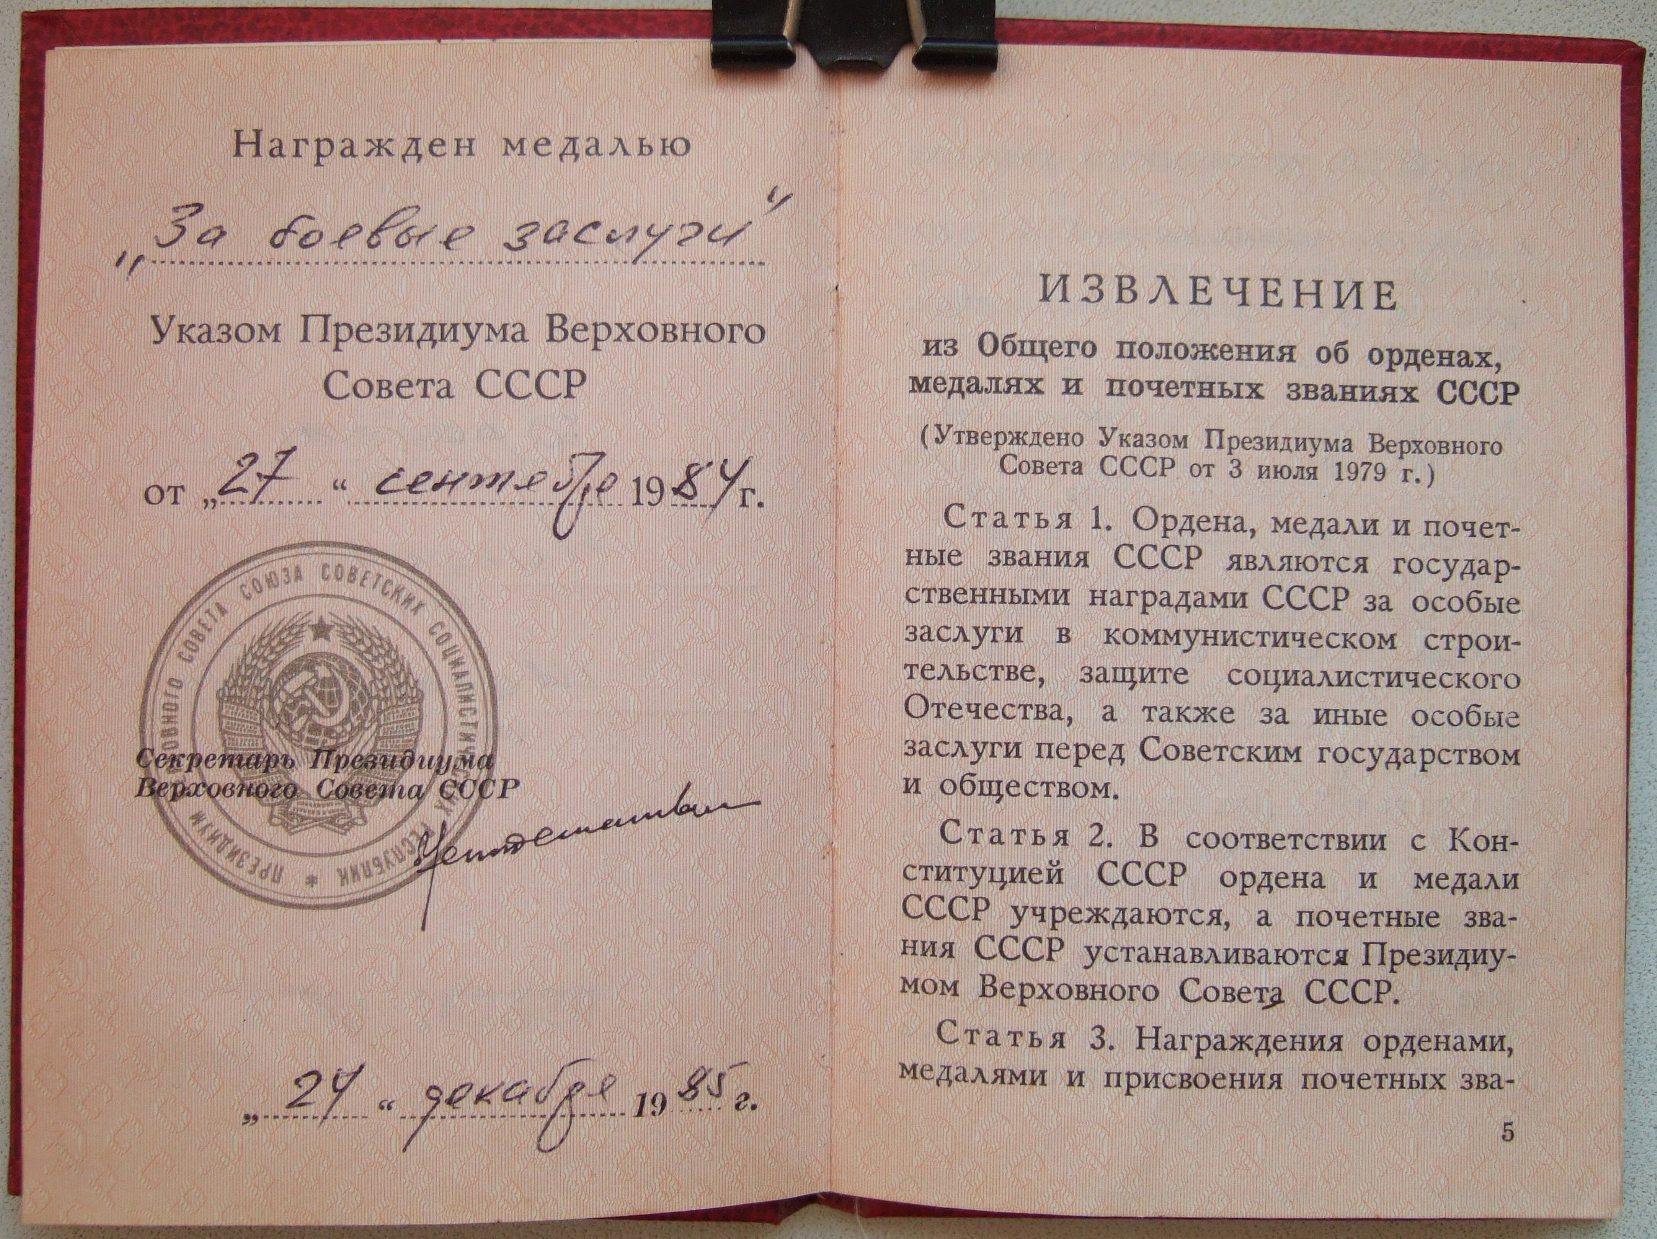 Награжден медалью
„За боевые заслуги“
Указом Президиума Верховного
Совета СССР
от „27“ сентября 1984 г.
ПРЕЗИДИУМ ВЕРХОВНОГО СОВЕТА СОЮЗА СОВЕТСКИХ СОЦИАЛИСТИЧЕСКИХ РЕСПУБЛИК *
Секретарь Президиума
Верховного Совета СССР
„24“ декабря 1985 г.
ИЗВЛЕЧЕНИЕ
из Общего положения об орденах,
медалях и почетных званиях СССР
(Утверждено Указом Президиума Верховного
Совета СССР от 3 июля 1979 г.)
Статья 1. Ордена, медали и почет-
ные звания СССР являются государ-
ственными наградами СССР за особые
заслуги в коммунистическом строи-
тельстве, защите социалистического
Отечества, а также за иные особые
заслуги перед Советским государством
и обществом.
Статья 2. В соответствии с Кон-
ституцией СССР ордена и медали
СССР учреждаются, а почетные зва-
ния СССР устанавливаются Президиу-
мом Верховного Совета СССР.
Статья 3. Награждения орденами,
медалями и присвоения почетных зва-
5